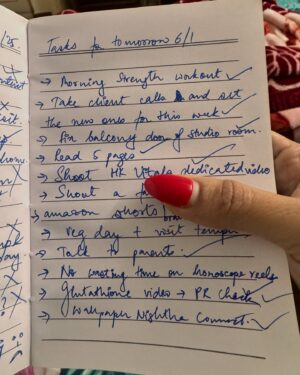 Tasks for tomorrow 6/1
→ Morning strength workout ✓
→ Take client calls and set
the new ones for this week ✓
→ Fix balcony door of studio room.
→ Read 5 pages ✓
→ Shoot HK Vitals dedicated video
→ Shout a
→ amazon shorts
→ veg day + visit temple
→ Talk to parents. ✓
→ No wasting time on horoscope reels
→ Glutathione video → PR check ✓
→ Wallpaper Nightha Connect. ✓
25.